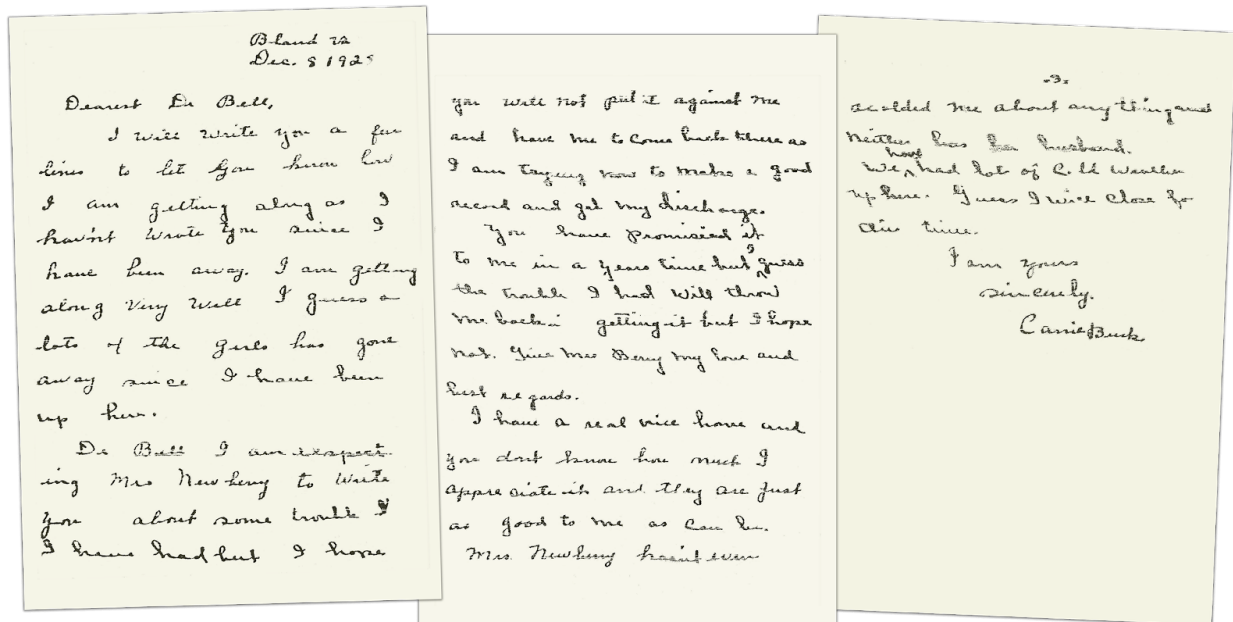 Bland Va
Dec. 8 1928
Dearest Dr Bell,
I will write you a few
lines to let you know how
I am getting along as I
havn't wrote you since I
have been away. I am getting
along very well I guess a
lots of the girls has gone
away since I have been
up here.
Dr Bell I am expect-
ing Mrs Newberry to write
you about some trouble I
I have had but I hope
you will not put it against me
and have me to come back there as
I am trying now to make a good
record and get my discharge.
You have promised it
to me in a years time but I guess
the trouble I had will throw
me back in getting it but I hope
not. Give Mrs Berry my love and
best regards.
I have a real nice home and
you dont know how much I
appreciate it and they are just
as good to me as can be.
Mrs. Newberry hasn't even
-3-
scolded me about anything and
neither has her husband.
We have had lots of cold weather
up here. Guess I will close for
this time.
I am yours
sincerely.
Carrie Buck